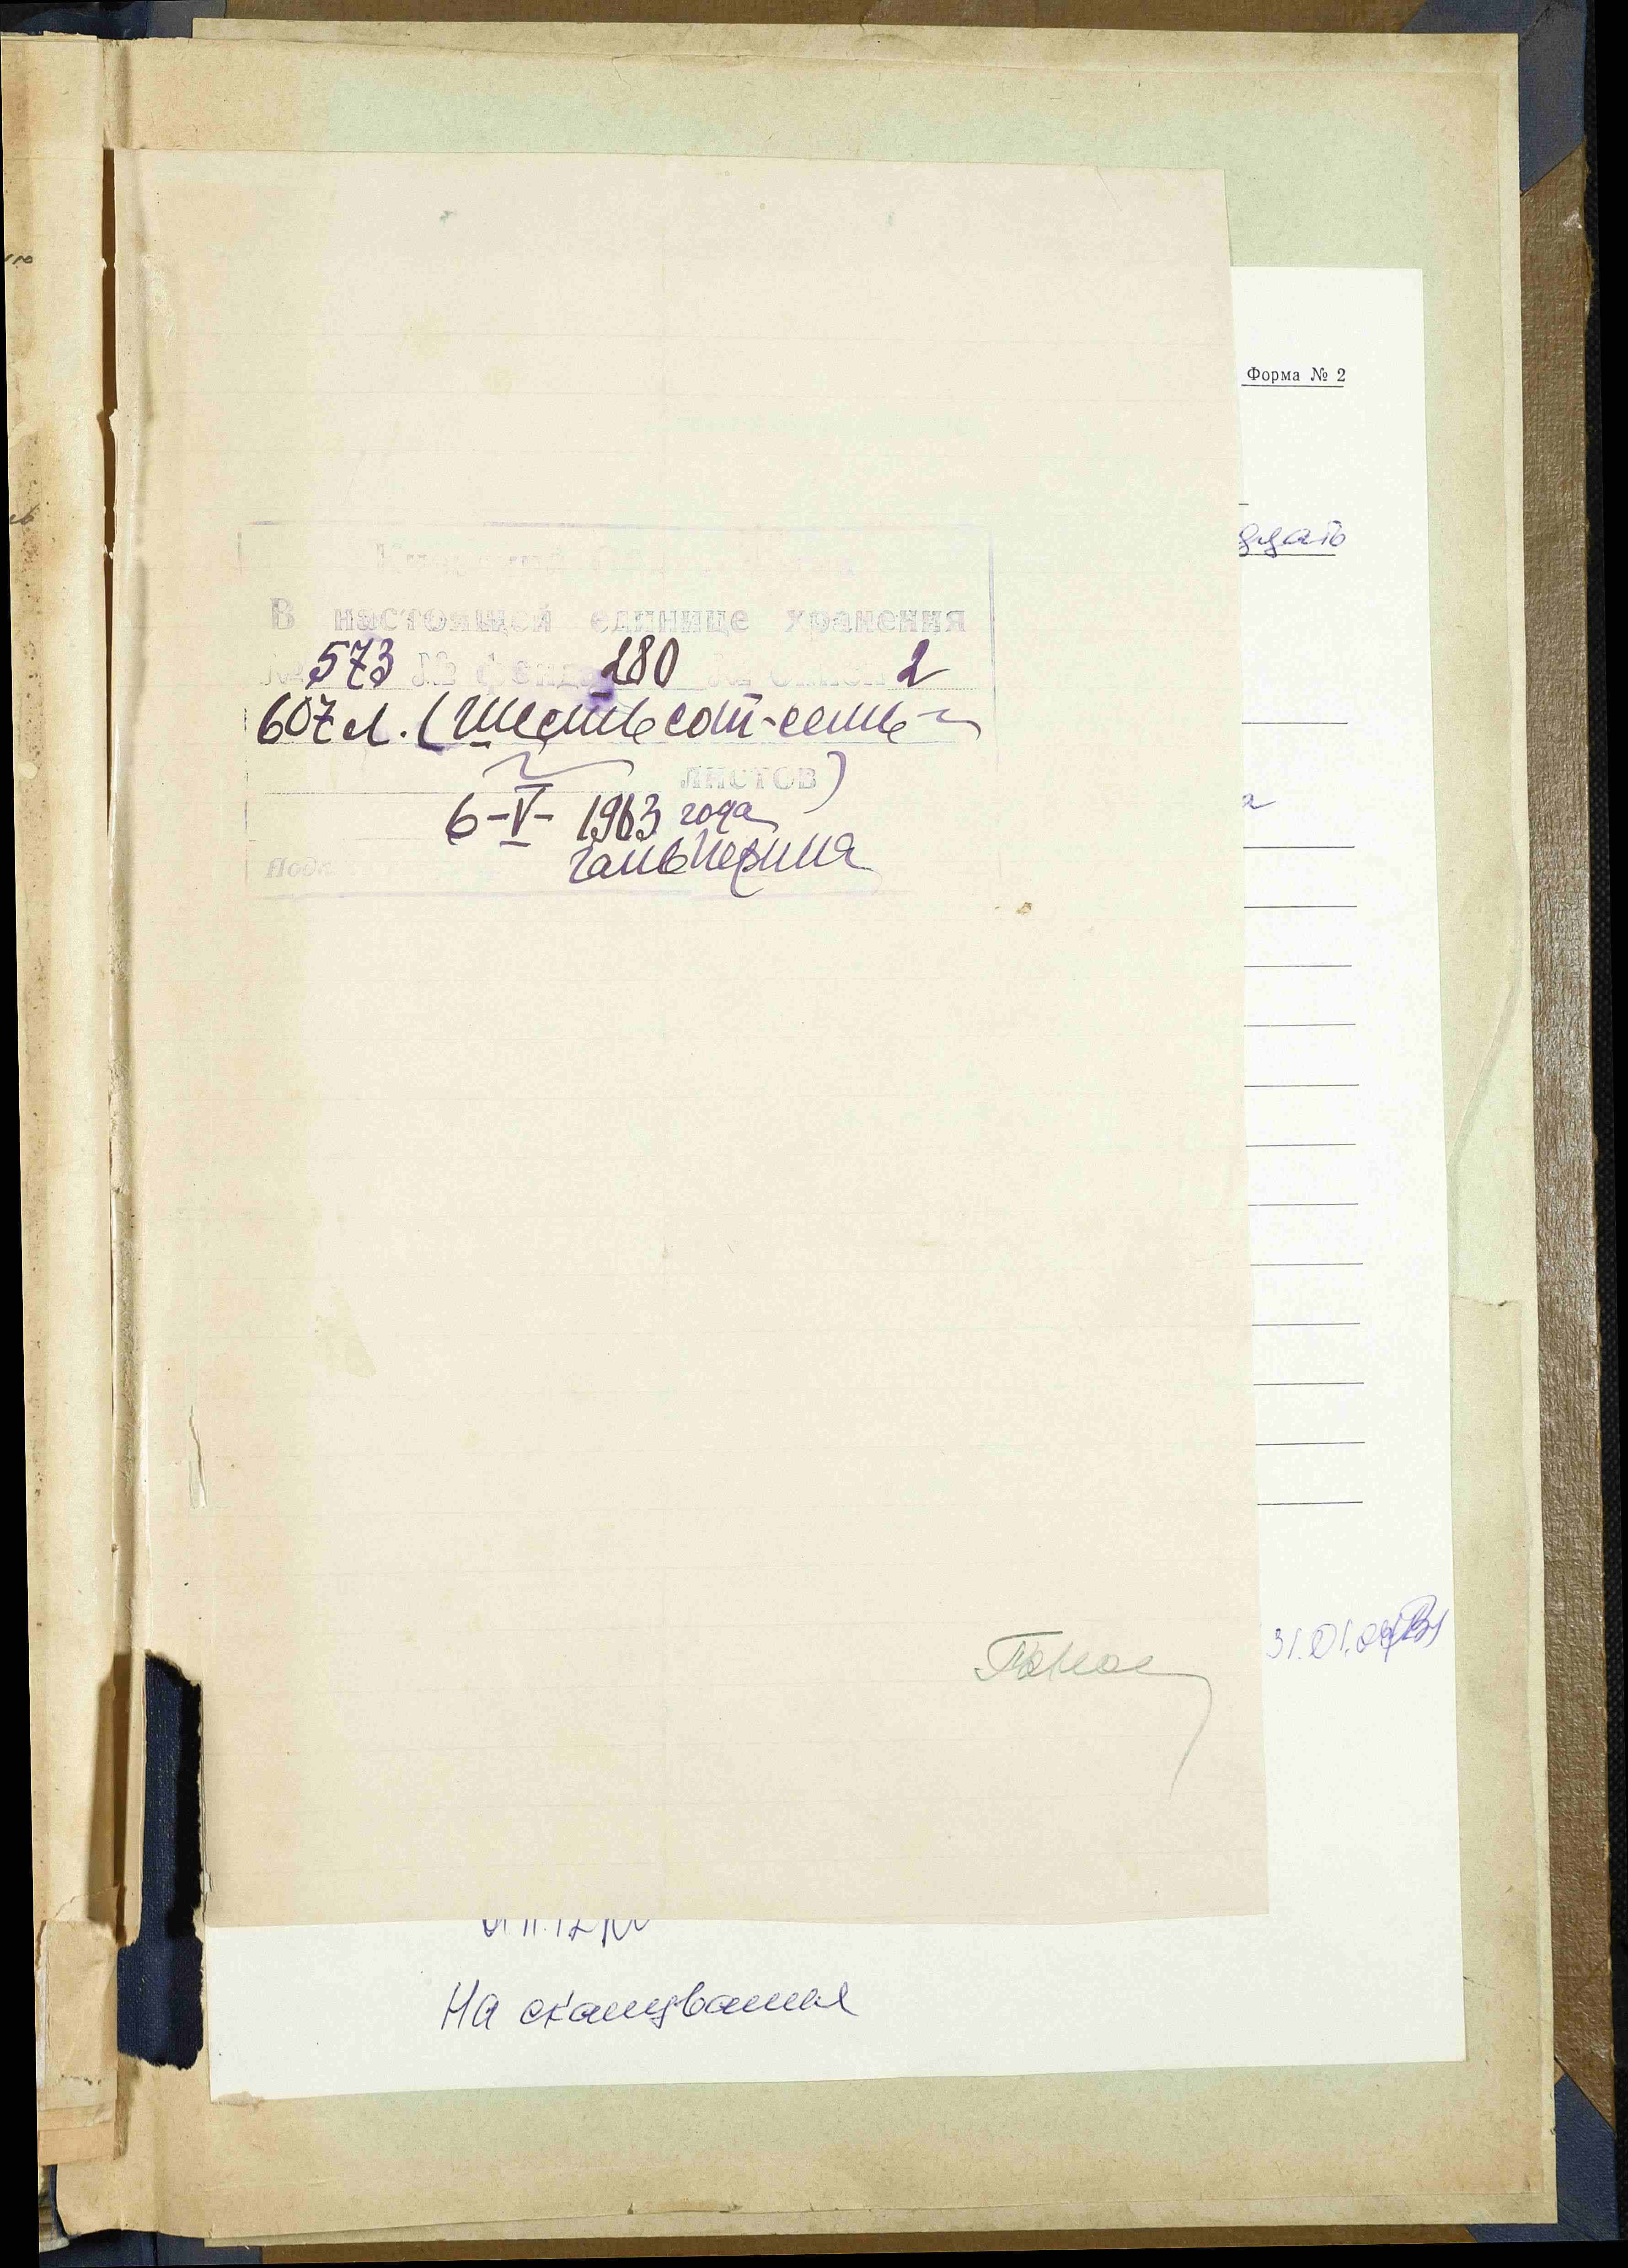 Форма № 2
В настоящей единице хранения
№ 573 № фонда 280 № описи 2
607 л. (шестьсот-семь
листов)
6-V-1963 года
Гальперина
31.01.
На сканування